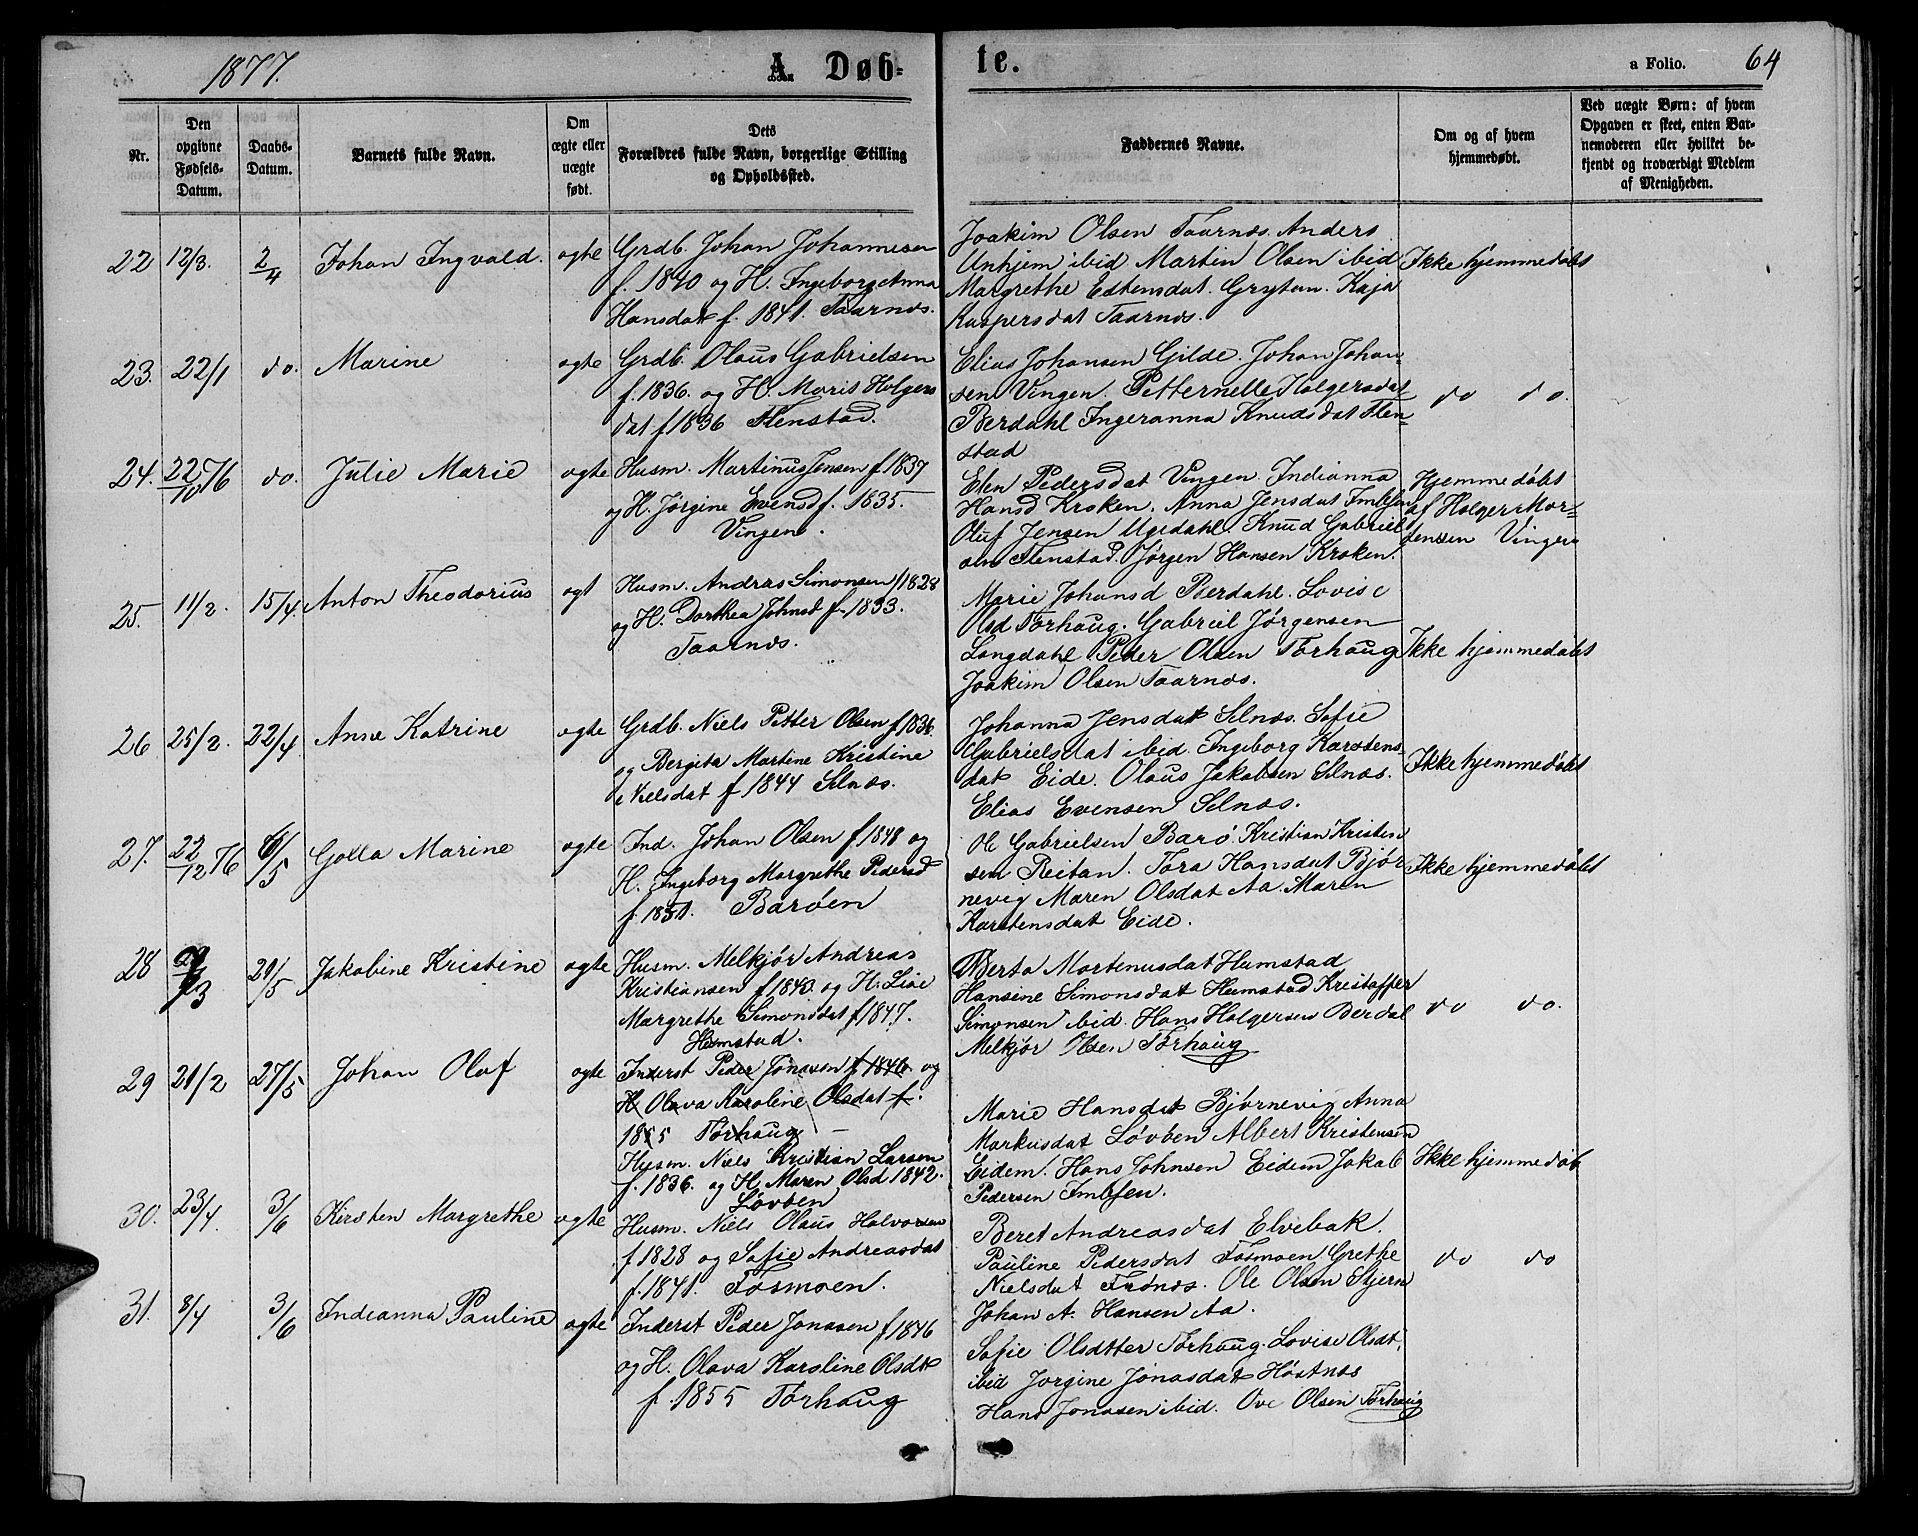 1877.
A. Døb-
te.
a Folio.
64
Nr.
Den opgivne Fødsels-Datum.
Daabs-Datum.
Barnets fulde Navn.
Om ægte eller uægte født.
Dets Forældres fulde Navn, borgerlige Stilling og Opholdssted.
Faddernes Navne.
Om og af hvem hjemmedøbt.
Ved uægte Børn: af hvem Opgaven er skeet, enten Barnemoderen eller hvilket bekjendt og troværdigt Medlem af Menigheden.
22 12/3. 2/4 Johan Ingvald. ægte
Grdb. Johan Johannesen
f. 1840 og H. Ingeborg Anna
Hansdat f. 1841. Taarnes.
Joakim Olsen Taarnes. Anders
Unhjem ibid Martin Olsen ibid
Margrethe Estensdat. Grytan. Kaja
Kaspersdat Taarnes.
Ikke hjemmedøbt
23. 22/1 do. Marine ægte
Grdb. Olaus Gabrielsen
f. 1836. og H. Marit Holgers
dat f 1836 Flenstad.
Elias Johansen Gilde. Johan Johan-
sen Vingen. Petternelle Holgersdat
Berdahl Ingeranna Knudsdat Flen-
stad
do do.
24. 22/10 76 do. Julie Marie ægte
Husm. Martinus Jensen f 1837
og H. Jørgine Evensd f. 1835.
Vingen.
Elen Pedersdat Vingen. Indianna
Hansd Kroken. Anna Jensdat
Oluf Jensen Ugedahl. Knud Gabriel
sen Flenstad. Jørgen Hansen Kroken.
Hjemmedøbt
af Holger Mor-
tensen Vingen
25. 11/2. 15/4 Anton Theodorius ægt
Husm. Andreas Simonsen f 1828
og H. Dorthea Johnsd f. 1833.
Taarnes.
Marie Johansd Berdahl. Lovise
Olsd Tørhaug. Gabriel Jørgensen
Langdahl Peder Olsen Tørhaug
Joakim Olsen Taarnes.
Ikke hjemmedøbt
26 25/2. 22/4 Anne Katrine ægte
Grdb. Niels Petter Olsen f 1836
og Bergita Martine Kristine
Nielsdat f 1844 Selnæs.
Johanna Jensdat Selnæs. Sofie
Gabrielsdat ibid. Ingeborg Karstens-
dat Eide. Olaus Jakobsen Selnæs.
Elias Evensen Selnæs.
Ikke hjemmedøbt
27. 22/12 76 6/5 Golla Marine ægte
Ind. Johan Olsen f 1848 og
H. Ingeborg Margrethe Pedersd
f. 1851. Barøen
Ole Gabrielsen Barø Kristian Kristen
sen Reitan. Tora Hansdat Bjør
nevig Maren Olsdat Aa. Maren
Karstensdat Eide.
Ikke hjemmedøbt
28 20/5 Jakobine Kristine ægte
Husm. Melkjør Andreas
Kristiansen f 1840. og H. Lise
Margrethe Simonsdat f 1847.
Hemstad.
Berta Mortenusdat Hemstad
Hansine Simonsdat Hemstad Kristoffer
Simonsen ibid. Hans Holgersen Berdal
Melkjør Olsen Tørhaug
do do.
29 21/2 27/5 Johan Olof ægte
Inderst Peder Jonasen f 1846. og
H Olava Karoline Olsdat f.
1855 Tørhaug
Husm. Niels Kristian Larsen
f. 1836. og H. Maren Olsd 1842.
Løvben
Marie Hansdat Bjørnevig Anna
Markusdat Løvben Albert Kristensen
Eidem. Hans Johnsen Eidem Jakob
Pedersen
Ikke hjemmedøb
30. 23/4 3/6 Kirsten Margrethe ægte
Husm. Niels Olaus Halvorsen
f 1828 og Sofie Andreasdat
f. 1841. Fosmoen.
Beret Andreasdat Elvebak.
Pauline Pedersdat Fosmoen Grethe
Nielsdat Frønes. Ole Olsen Stjern
Johan A. Hansen Aa.
do do
31. 8/4 3/6 Indianna Pauline ægte
Inderst Peder Jonasen f 1846
og H. Olava Karoline Olsdt
f. 1855 Tørhaug
Sofie Olsdtter Tørhaug. Lovise Olsdt,
ibid Jørgine Jonasdat Høstnes
Hans Jonasen ibid. Ove Olsen Tørhaug